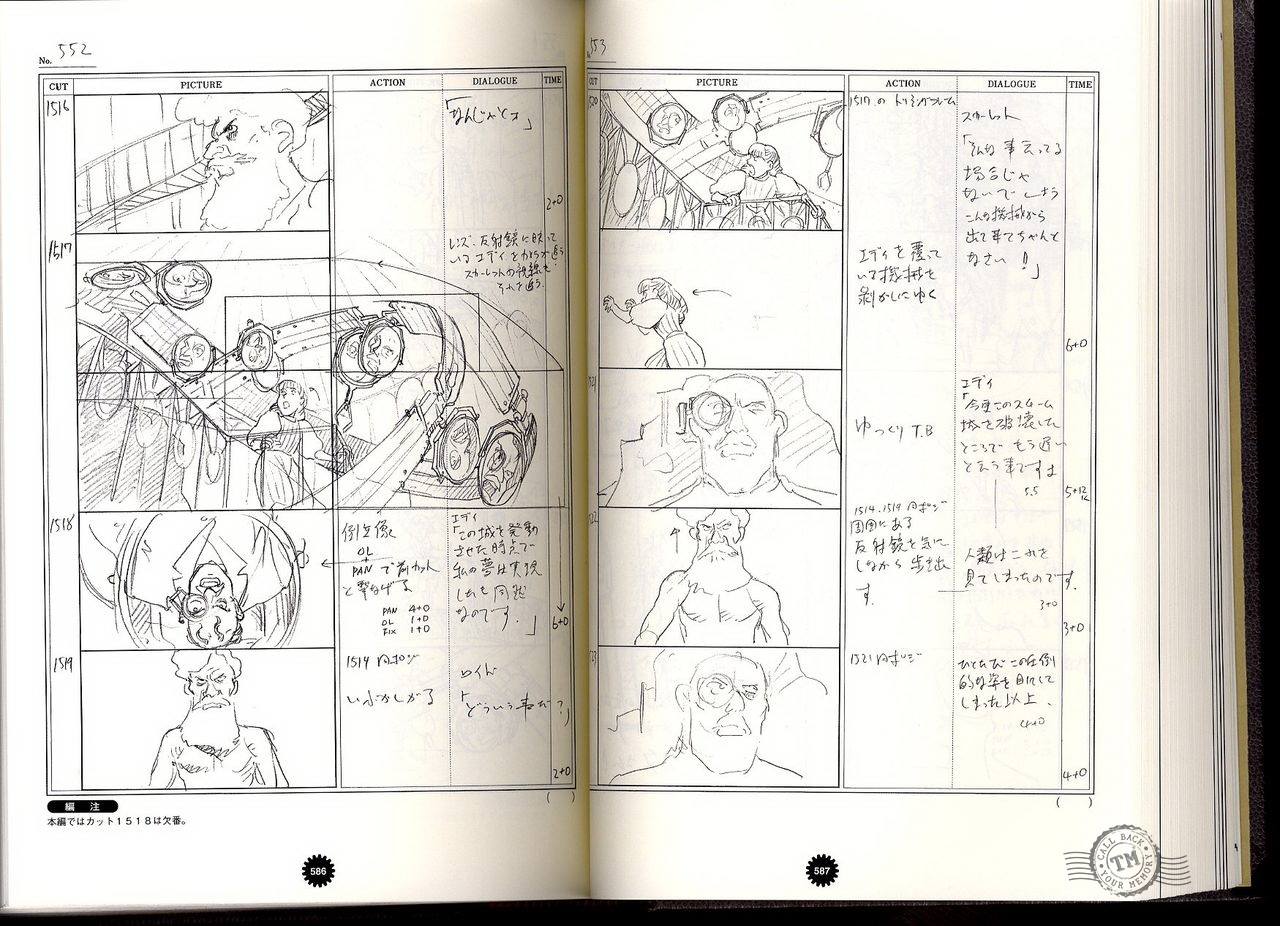 No. 552
CUT PICTURE ACTION DIALOGUE TIME
1516
「なんじゃとォ」
2+0
1517
レンズ、反射鏡に映って
いるエディをカメラが追う
スカーレットの視線も
それを追う
6+0
1518
倒立像
OL
+
PAN で前カット
と繋なげる
PAN 4+0
OL 1+0
FIX 1+0
エディ
「この城を発動
させた時点で
私の夢は実現
したも同然
なのです。」
1519
1514 同ポジ
いぶかしがる
ロイド
「どういう事だ?」
2+0
( )
編 注
本編ではカット1518は欠番。
586
553
CUT PICTURE ACTION DIALOGUE TIME
520
1517の トリミングフレーム
スカーレット
「そんな事云ってる
場合じゃ
ないでしょう
こんな機械から
出て来てちゃんと
なさい!」
エディを覆って
いる機械を
剥がしにゆく
6+0
521
ゆっくり T.B
エディ
「今更このスチーム
城を破壊した
ところでもう遅い
と云う事ですよ
5.5
5+12k
522
1514.1519 同ポジ
周囲にある
反射鏡を気に
しながら 歩き出
す.
人類はこれを
見てしまったのです.
3+0
3+0
523
1521 同ポジ
ひとたびこの圧倒
的な姿を目にして
しまった以上、
4+0
4+0
( )
587
CALL BACK
TM
YOUR MEMORY